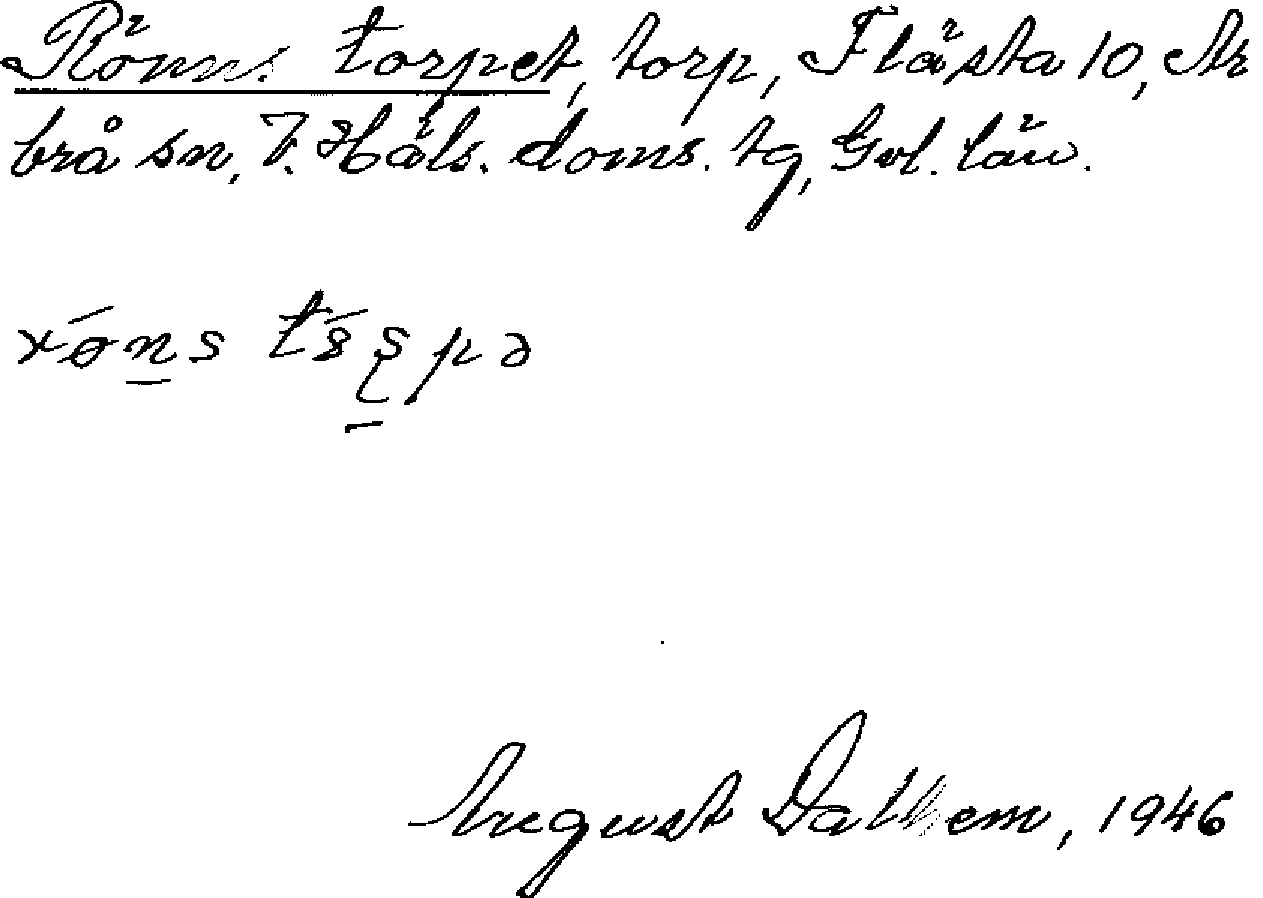 Rönns torpet, torp, Flästa 10, Ar
brå sn, V. Häls. doms. tg, Gvl. län.
August Dallhem, 1946